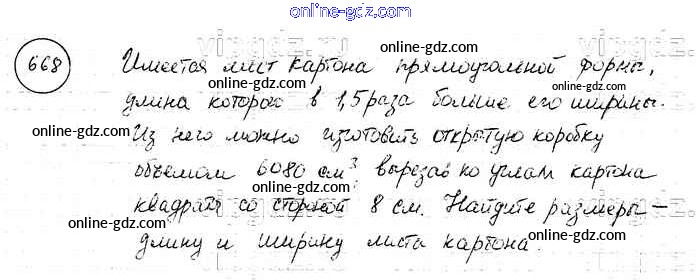 online-gdz.com
668 Имеется лист картона прямоугольной формы,
online-gdz.com
длина которого в 1,5 раза больше его ширины.
online-gdz.com
Из него можно изготовить открытую коробку
online-gdz.com
объемом 6080 см³, вырезав по углам картона
online-gdz.com
квадраты со стороной 8 см. Найдите размеры –
online-gdz.com
длину и ширину листа картона.
online-gdz.com